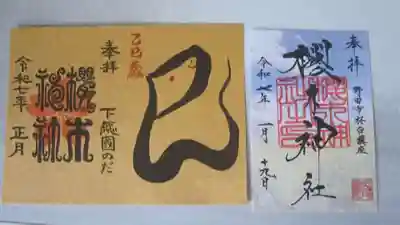 乙巳歳
奉拝
下総國のだ
櫻木
神社
令和七年
正月
奉拝
野田市桜台鎮座
櫻木神社
令和七年
一月
十九日